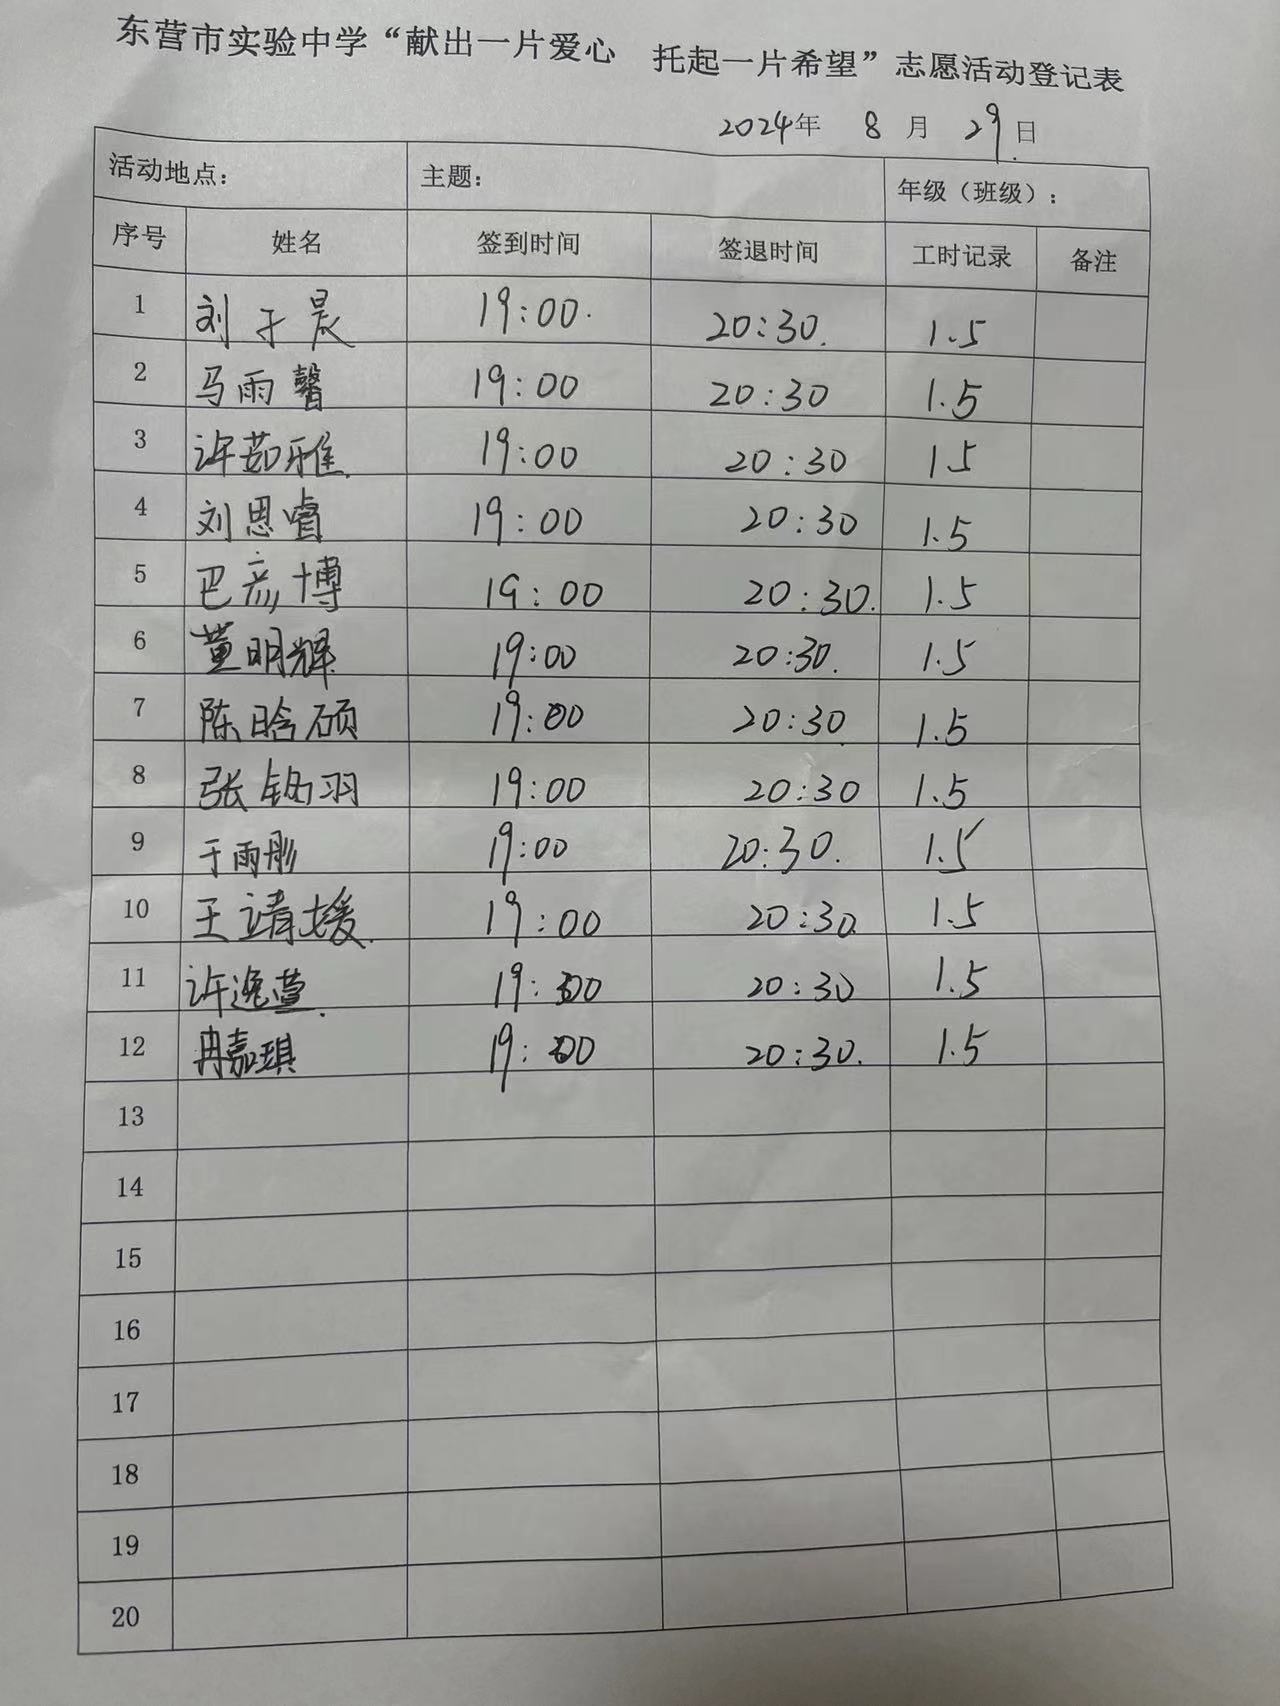 东营市实验中学“献出一片爱心 托起一片希望”志愿活动登记表
2024年 8月 29日
活动地点： 主题： 年级（班级）：
序号 姓名 签到时间 签退时间 工时记录 备注
1 刘于晨 19:00. 20:30. 1.5
2 马雨馨 19:00 20:30 1.5
3 许茹雅. 19:00 20:30 1.5
4 刘思睿 19:00 20:30 1.5
5 巴彦博 19:00 20:30. 1.5
6 董明辉 19:00 20:30. 1.5
7 陈晗硕 19:00 20:30 1.5
8 张铭羽 19:00 20:30 1.5
9 于雨彤 19:00 20:30. 1.5
10 王靖媛. 19:00 20:30. 1.5
11 许逸萱. 19:00 20:30 1.5
12 冉嘉琪 19:00 20:30. 1.5
13
14
15
16
17
18
19
20